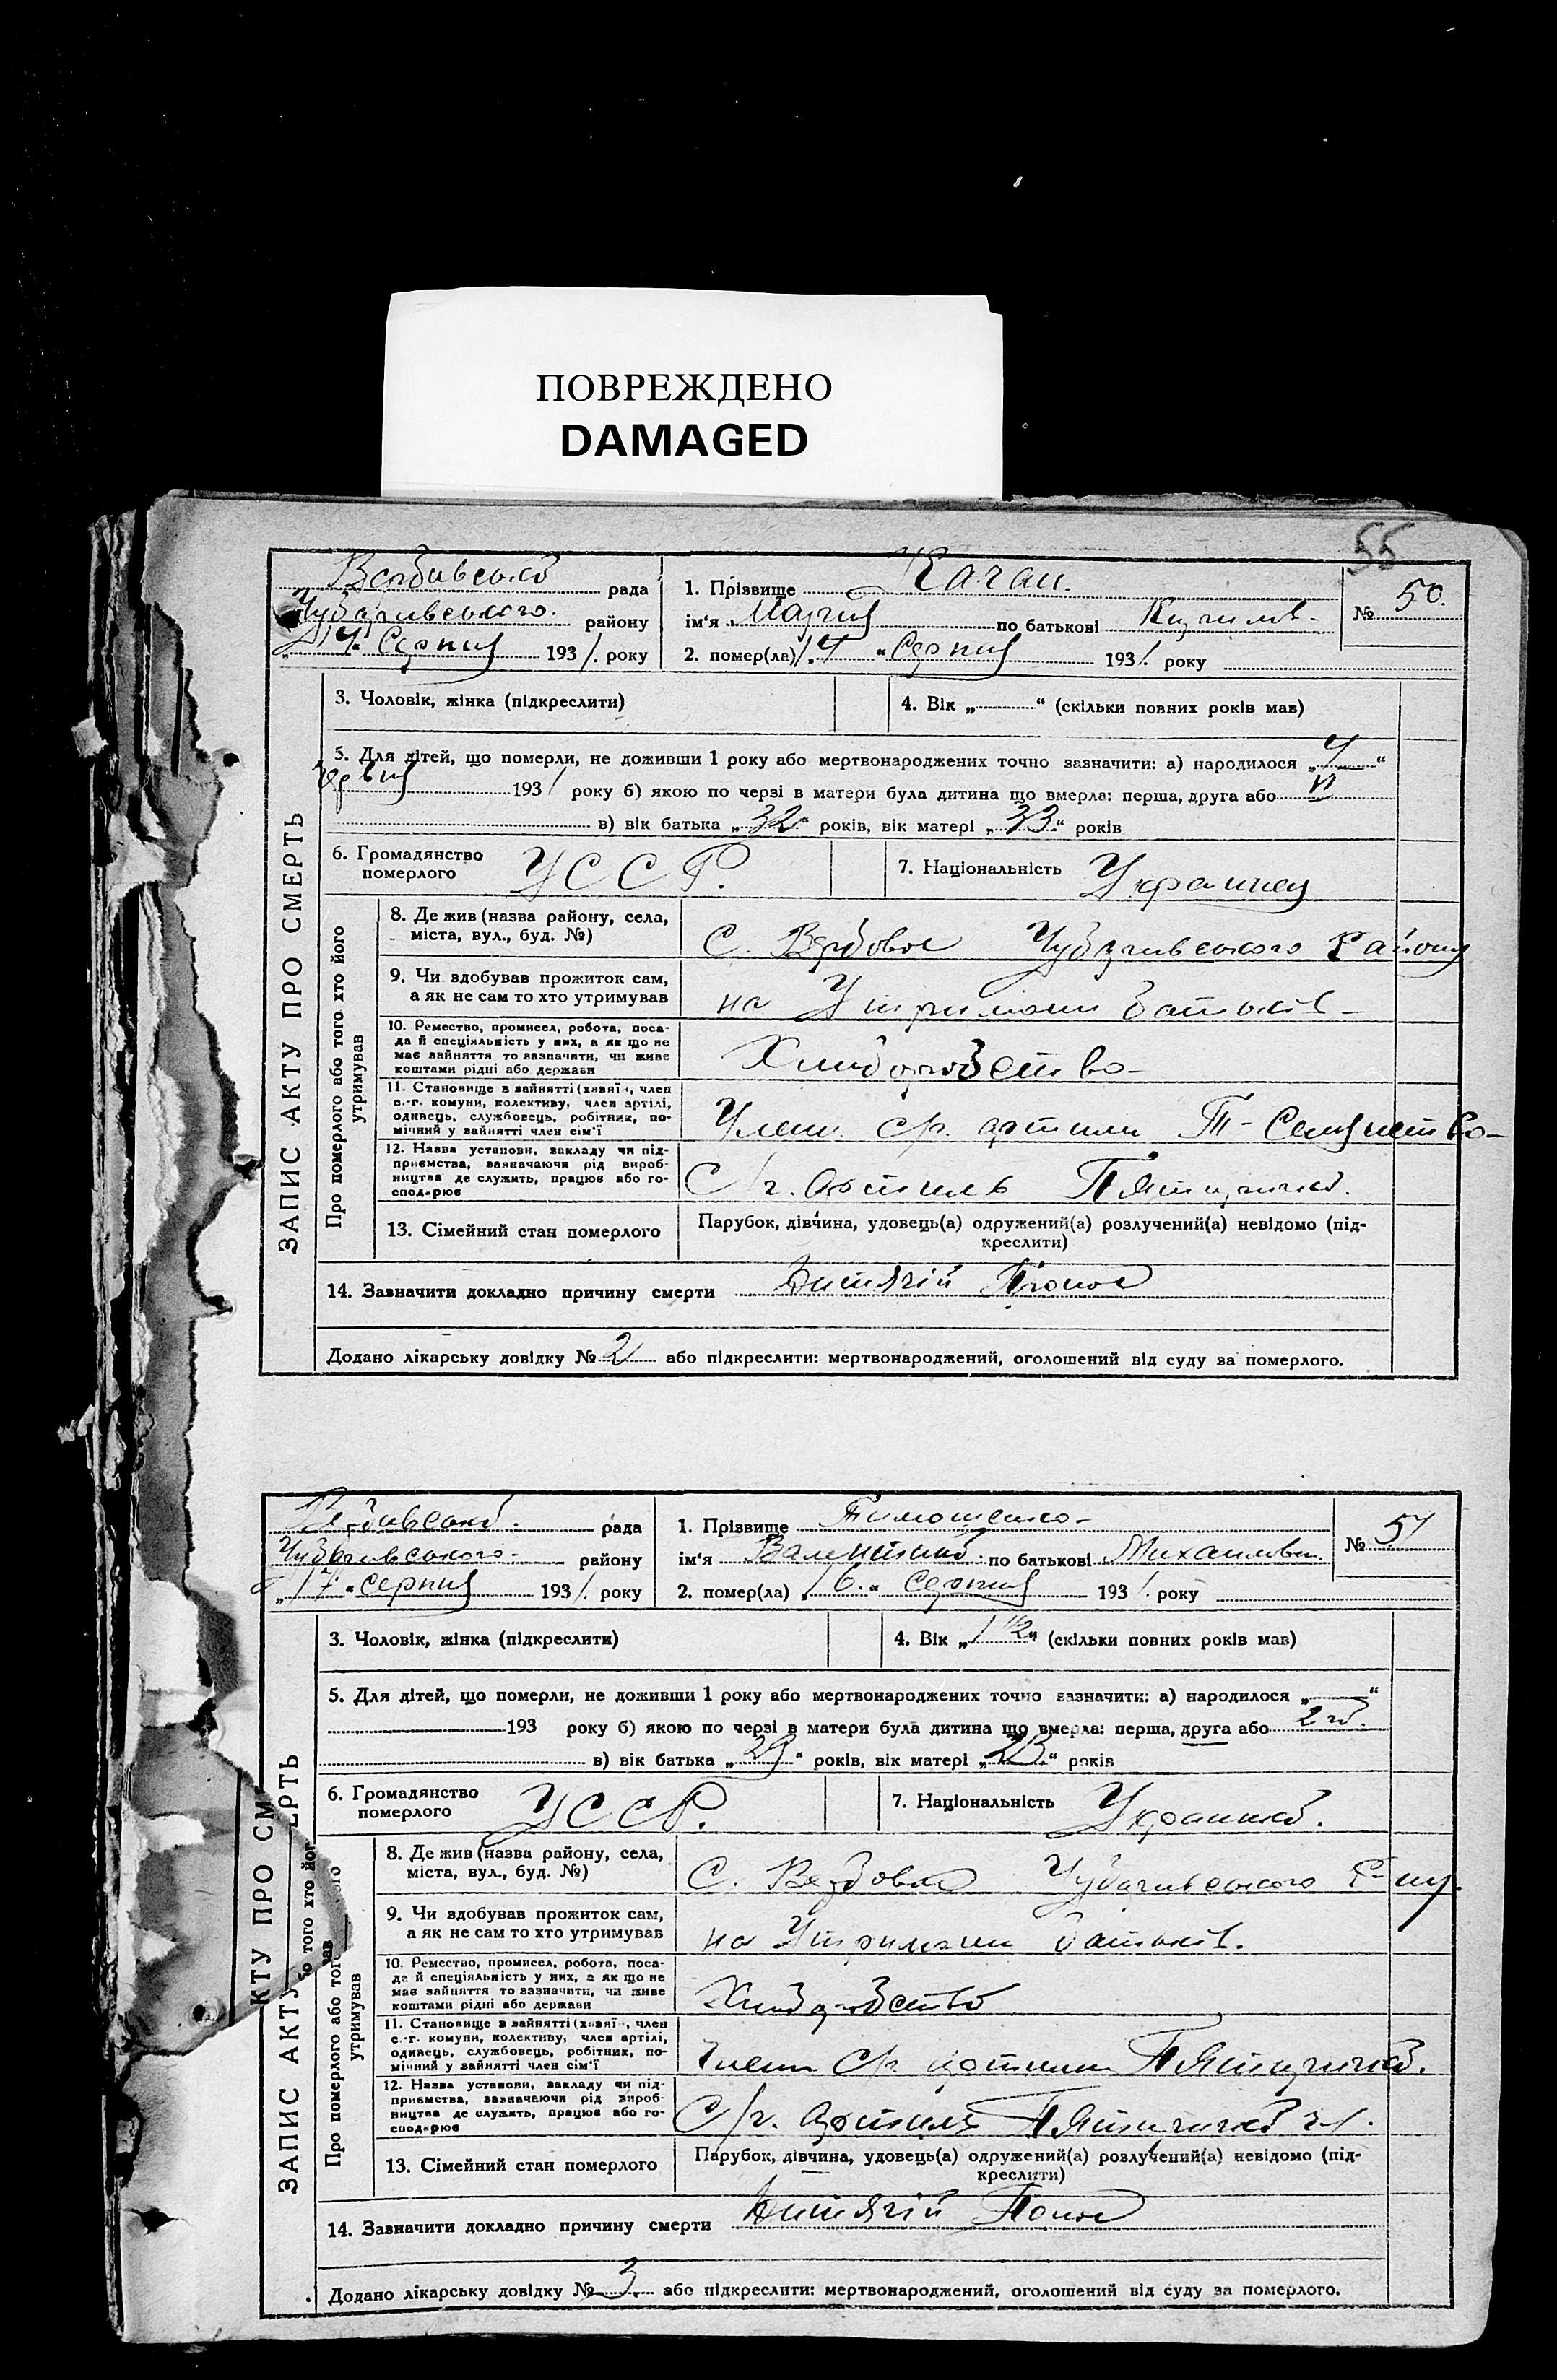 ПОВРЕЖДЕНО
DAMAGED
55
Вербивської рада
Чубарівського району
„14“ Серпня 1931. року
1. Прізвище Качан.
ім‘я Мария по батькові Кирилов-
№ 50.
2. помер(ла) „14“ Серпня 1931. року
ЗАПИС АКТУ ПРО СМЕРТЬ
3. Чоловік, жінка (підкреслити)
4. Вік „ “ (скільки повних років мав)
5. Для дітей, що померли, не доживши 1 року або мертвонароджених точно зазначити: а) народилося „4“
червня 1931 року б) якою по черзі в матери була дитина що вмерла: перша, друга або VI
в) вік батька „32“ років, вік матері „33“ років
6. Громадянство померлого УССР.
7. Національність Украинка
Про померлого або того хто його утримував
8. Де жив (назва району, села,
міста, вул., буд. №)
С. Вербовое Чубарівського Району
9. Чи здобував прожиток сам,
а як не сам то хто утримував
на Утримани батьків-
10. Ремество, промисел, робота, поса-
да й спеціяльність у них, а як що не
має зайняття то зазначити, чи живе
коштами рідні або держави
Хлиборобство-
11. Становище в зайнятті (хазяїн, член
с.-г. комуни, колективу, член артілі,
одинець, службовець, робітник, по-
мічний у зайнятті член сім‘ї
Член с/г. артили
12. Назва установи, закладу чи під-
приємства, зазначаючи рід вироб-
ництва де служить, працює або го-
сподарює
С/г. Артиль Пятиричка.
13. Сімейний стан померлого
Парубок, дівчина, удовець(а) одружений(а) розлучений(а) невідомо (під-
креслити)
14. Зазначити докладно причину смерти Дитячій Понос
Додано лікарську довідку № 2 або підкреслити: мертвонароджений, оголошений від суду за померлого.
Вербивської. рада
Чубарівського- району
„17“ серпня 1931. року
1. Прізвище Тимошенко-
ім‘я Валентина по батькові Михаиловн.
№ 51
2. помер(ла) „16.“ Серпня 1931. року
ЗАПИС АКТУ ПРО СМЕРТЬ
КТУ ПРО СМ
3. Чоловік, жінка (підкреслити)
4. Вік „1 1/2“ (скільки повних років мав)
5. Для дітей, що померли, не доживши 1 року або мертвонароджених точно зазначити: а) народилося „ “
193 року б) якою по черзі в матери була дитина що вмерла: перша, друга або 2 га.
в) вік батька „29“ років, вік матері „23“ років
6. Громадянство померлого УССР.
7. Національність Украинка.
Про померлого або того хто його утримував
8. Де жив (назва району, села,
міста, вул., буд. №)
С. Вербовое Чубарівського Р-ну.
9. Чи здобував прожиток сам,
а як не сам то хто утримував
на Утримани батьків.
10. Ремество, промисел, робота, поса-
да й спеціяльність у них, а як що не
має зайняття то зазначити, чи живе
коштами рідні або держави
Хлиборобство
11. Становище в зайнятті (хазяїн, член
с.-г. комуни, колективу, член артілі,
одинець, службовець, робітник, по-
мічний у зайнятті член сім‘ї
Член с/г. артили Пятиричка.
12. Назва установи, закладу чи під-
приємства, зазначаючи рід вироб-
ництва де служить, працює або го-
сподарює
С/г. Артиль Пятиричка
13. Сімейний стан померлого
Парубок, дівчина, удовець(а) одружений(а) розлучений(а) невідомо (під-
креслити)
14. Зазначити докладно причину смерти Дитячій Понос
Додано лікарську довідку № 3 або підкреслити: мертвонароджений, оголошений від суду за померлого.